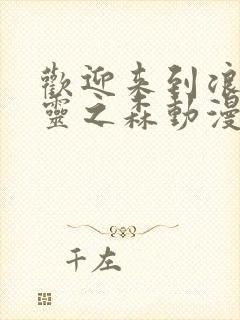 歡迎来到浪
靈之森動漫
千左